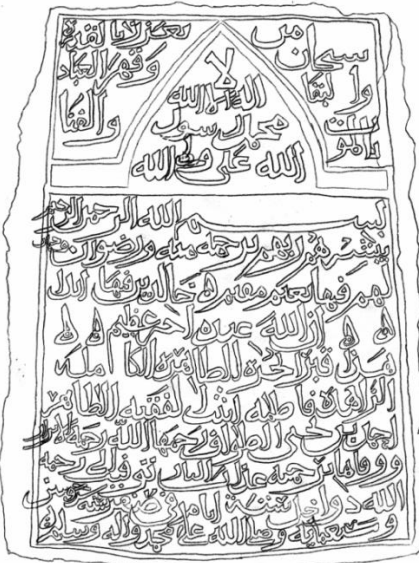 سبحان من تعزز با لقدرة
وا لبقا وقهر العباد
بالموت والفنا
لا
اله الا الله
محمد رسول
الله علي ولي الله
بسم الله الرحمن الرحيم
يبشرهم ربهم برحمة منه ورضوان وجنات
لهم فيها نعيم مقيم خالدين فيها ابدا
ان الله عنده اجر عظيم
هذا قبر الحرة الطاهرة الكاملة
الزاهدة فاطمة ابنت الفقيه الطاهر
بن يحيى رحمها الله رحمة
ووقاها برحمته عذاب النار الى رحمة
الله ايام من شهر
وسبعمائة وصلى الله على محمد واله وسلم